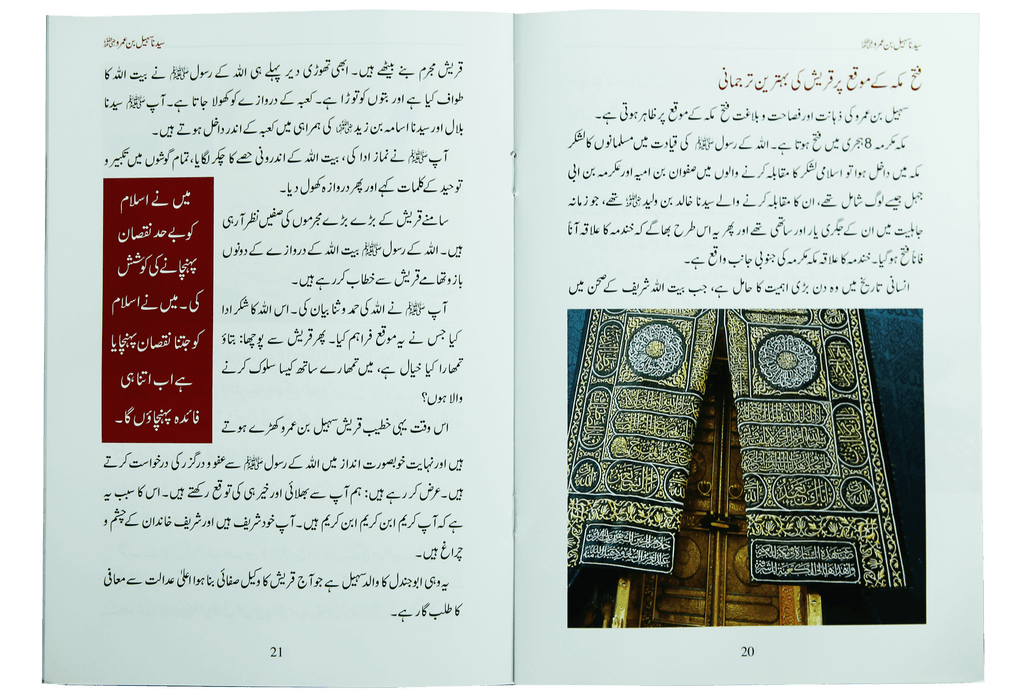 سیدنا سہیل بن عمرو رضی اللہ عنہ
فتح مکہ کے موقع پر قریش کی بہترین ترجمانی
سہیل بن عمرو کی ذہانت اور فصاحت و بلاغت فتح مکہ کے موقع پر ظاہر ہوتی ہے۔
مکہ مکرمہ 8 ہجری میں فتح ہوتا ہے۔ اللہ کے رسول ﷺ کی قیادت میں مسلمانوں کا لشکر
مکہ میں داخل ہوا تو اسلامی لشکر کا مقابلہ کرنے والوں میں صفوان بن امیہ اور عکرمہ بن ابی
جہل جیسے لوگ شامل تھے، ان کا مقابلہ کرنے والے سیدنا خالد بن ولید رضی اللہ عنہ تھے، جو زمانہ
جاہلیت میں ان کے جگری یار اور ساتھی تھے اور پھر یہ اس طرح بھاگے کہ خندمہ کا علاقہ آناً
فاناً فتح ہو گیا۔ خندمہ کا علاقہ مکہ مکرمہ کی جنوبی جانب واقع ہے۔
انسانی تاریخ میں وہ دن بڑی اہمیت کا حامل ہے، جب بیت اللہ شریف کے صحن میں
20
سیدنا سہیل بن عمرو رضی اللہ عنہ
قریش مجرم بنے بیٹھے ہیں۔ ابھی تھوڑی دیر پہلے ہی اللہ کے رسول ﷺ نے بیت اللہ کا
طواف کیا ہے اور بتوں کو توڑا ہے۔ کعبہ کے دروازے کو کھولا جاتا ہے۔ آپ ﷺ سیدنا
بلال اور سیدنا اسامہ بن زید رضی اللہ عنہما کی ہمراہی میں کعبہ کے اندر داخل ہوتے ہیں۔
آپ ﷺ نے نماز ادا کی، بیت اللہ کے اندرونی حصے کا چکر لگایا، تمام گوشوں میں تکبیر و
توحید کے کلمات کہے اور پھر دروازہ کھول دیا۔
سامنے قریش کے بڑے بڑے مجرموں کی صفیں نظر آ رہی
ہیں۔ اللہ کے رسول ﷺ بیت اللہ کے دروازے کے دونوں
بازو تھامے قریش سے خطاب کر رہے ہیں۔
آپ ﷺ نے اللہ کی حمد و ثنا بیان کی۔ اس اللہ کا شکر ادا
کیا جس نے یہ موقع فراہم کیا۔ پھر قریش سے پوچھا: بتاؤ
تمھارا کیا خیال ہے، میں تمھارے ساتھ کیسا سلوک کرنے
والا ہوں؟
اس وقت یہی خطیب قریش سہیل بن عمرو کھڑے ہوتے
ہیں اور نہایت خوبصورت انداز میں اللہ کے رسول ﷺ سے عفو و درگزر کی درخواست کرتے
ہیں۔ عرض کر رہے ہیں: ہم آپ سے بھلائی اور خیر ہی کی توقع رکھتے ہیں۔ اس کا سبب یہ
ہے کہ آپ کریم ابن کریم ابن کریم ہیں۔ آپ خود شریف ہیں اور شریف خاندان کے چشم و
چراغ ہیں۔
یہ وہی ابو جندل کا والد سہیل ہے جو آج قریش کا وکیل صفائی بنا ہوا اعلیٰ عدالت سے معافی
کا طلب گار ہے۔
میں نے اسلام
کو بے حد نقصان
پہنچانے کی کوشش
کی۔ میں نے اسلام
کو جتنا نقصان پہنچایا
ہے اب اتنا ہی
فائدہ پہنچاؤں گا۔
21